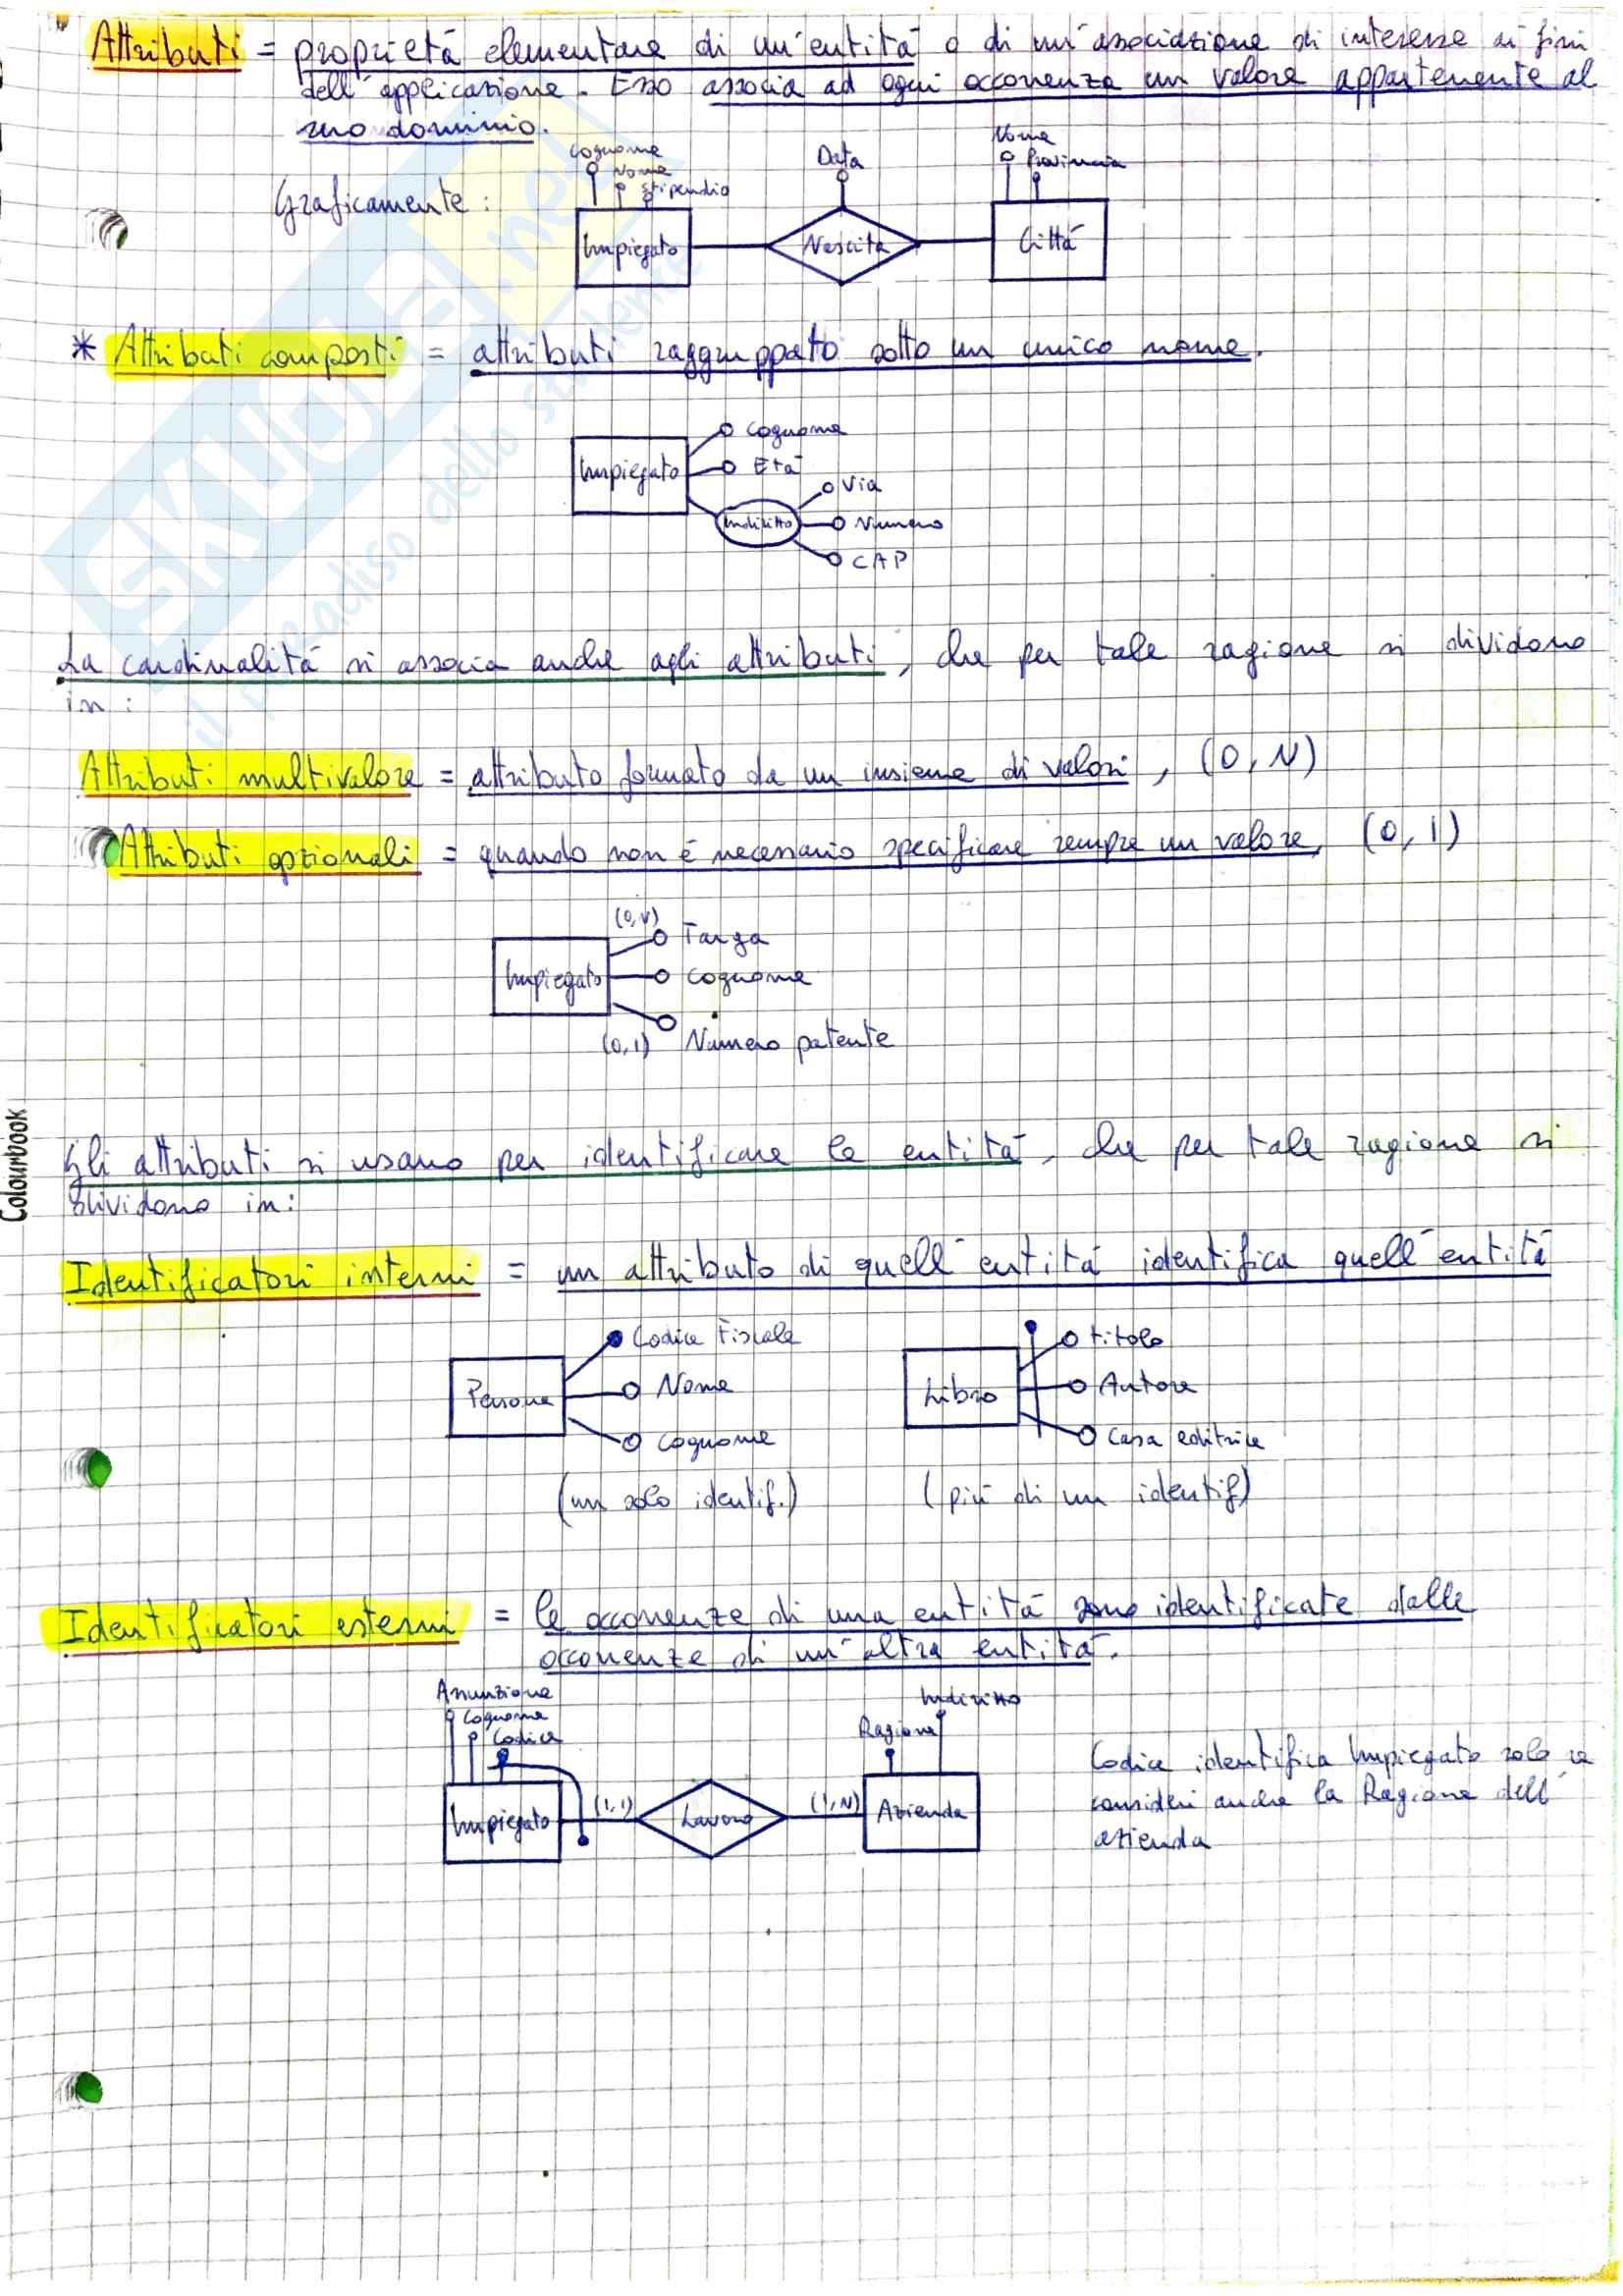 Attributi = proprietà elementare di un'entità o di un'associazione di interesse ai fini
dell'applicazione. Esso associa ad ogni occorrenza un valore appartenente al
suo dominio.
Graficamente:
Cognome
Nome
Stipendio
Impiegato
Data
Nascita
Nome
Provincia
Città
* Attributi composti = attributi raggruppato sotto un unico nome.
Impiegato
Cognome
Età
Indirizzo
Via
Numero
CAP
La cardinalità si associa anche agli attributi, che per tale ragione si dividono
in:
Attributi multivalore = attributo formato da un insieme di valori, (0,N)
Attributi opzionali = quando non è necessario specificare sempre un valore, (0,1)
Impiegato
(0,N)
Targa
Cognome
(0,1) Numero patente
Gli attributi si usano per identificare le entità, che per tale ragione si
dividono in:
Identificatori interni = un attributo di quell'entità identifica quell'entità
Persona
Codice Fiscale
Nome
Cognome
(un solo identif.)
Libro
Titolo
Autore
Casa editrice
(più di un identif)
Identificatori esterni = le occorrenze di una entità sono identificate dalle
occorrenze di un'altra entità.
Assunzione
Cognome
Codice
Impiegato
(1,1)
Lavoro
(1,N)
Ragione
Indirizzo
Azienda
Codice identifica Impiegato solo se
consideri anche la Ragione dell'
azienda
Colourbook
SKUOLA.net
il paradiso dello studente